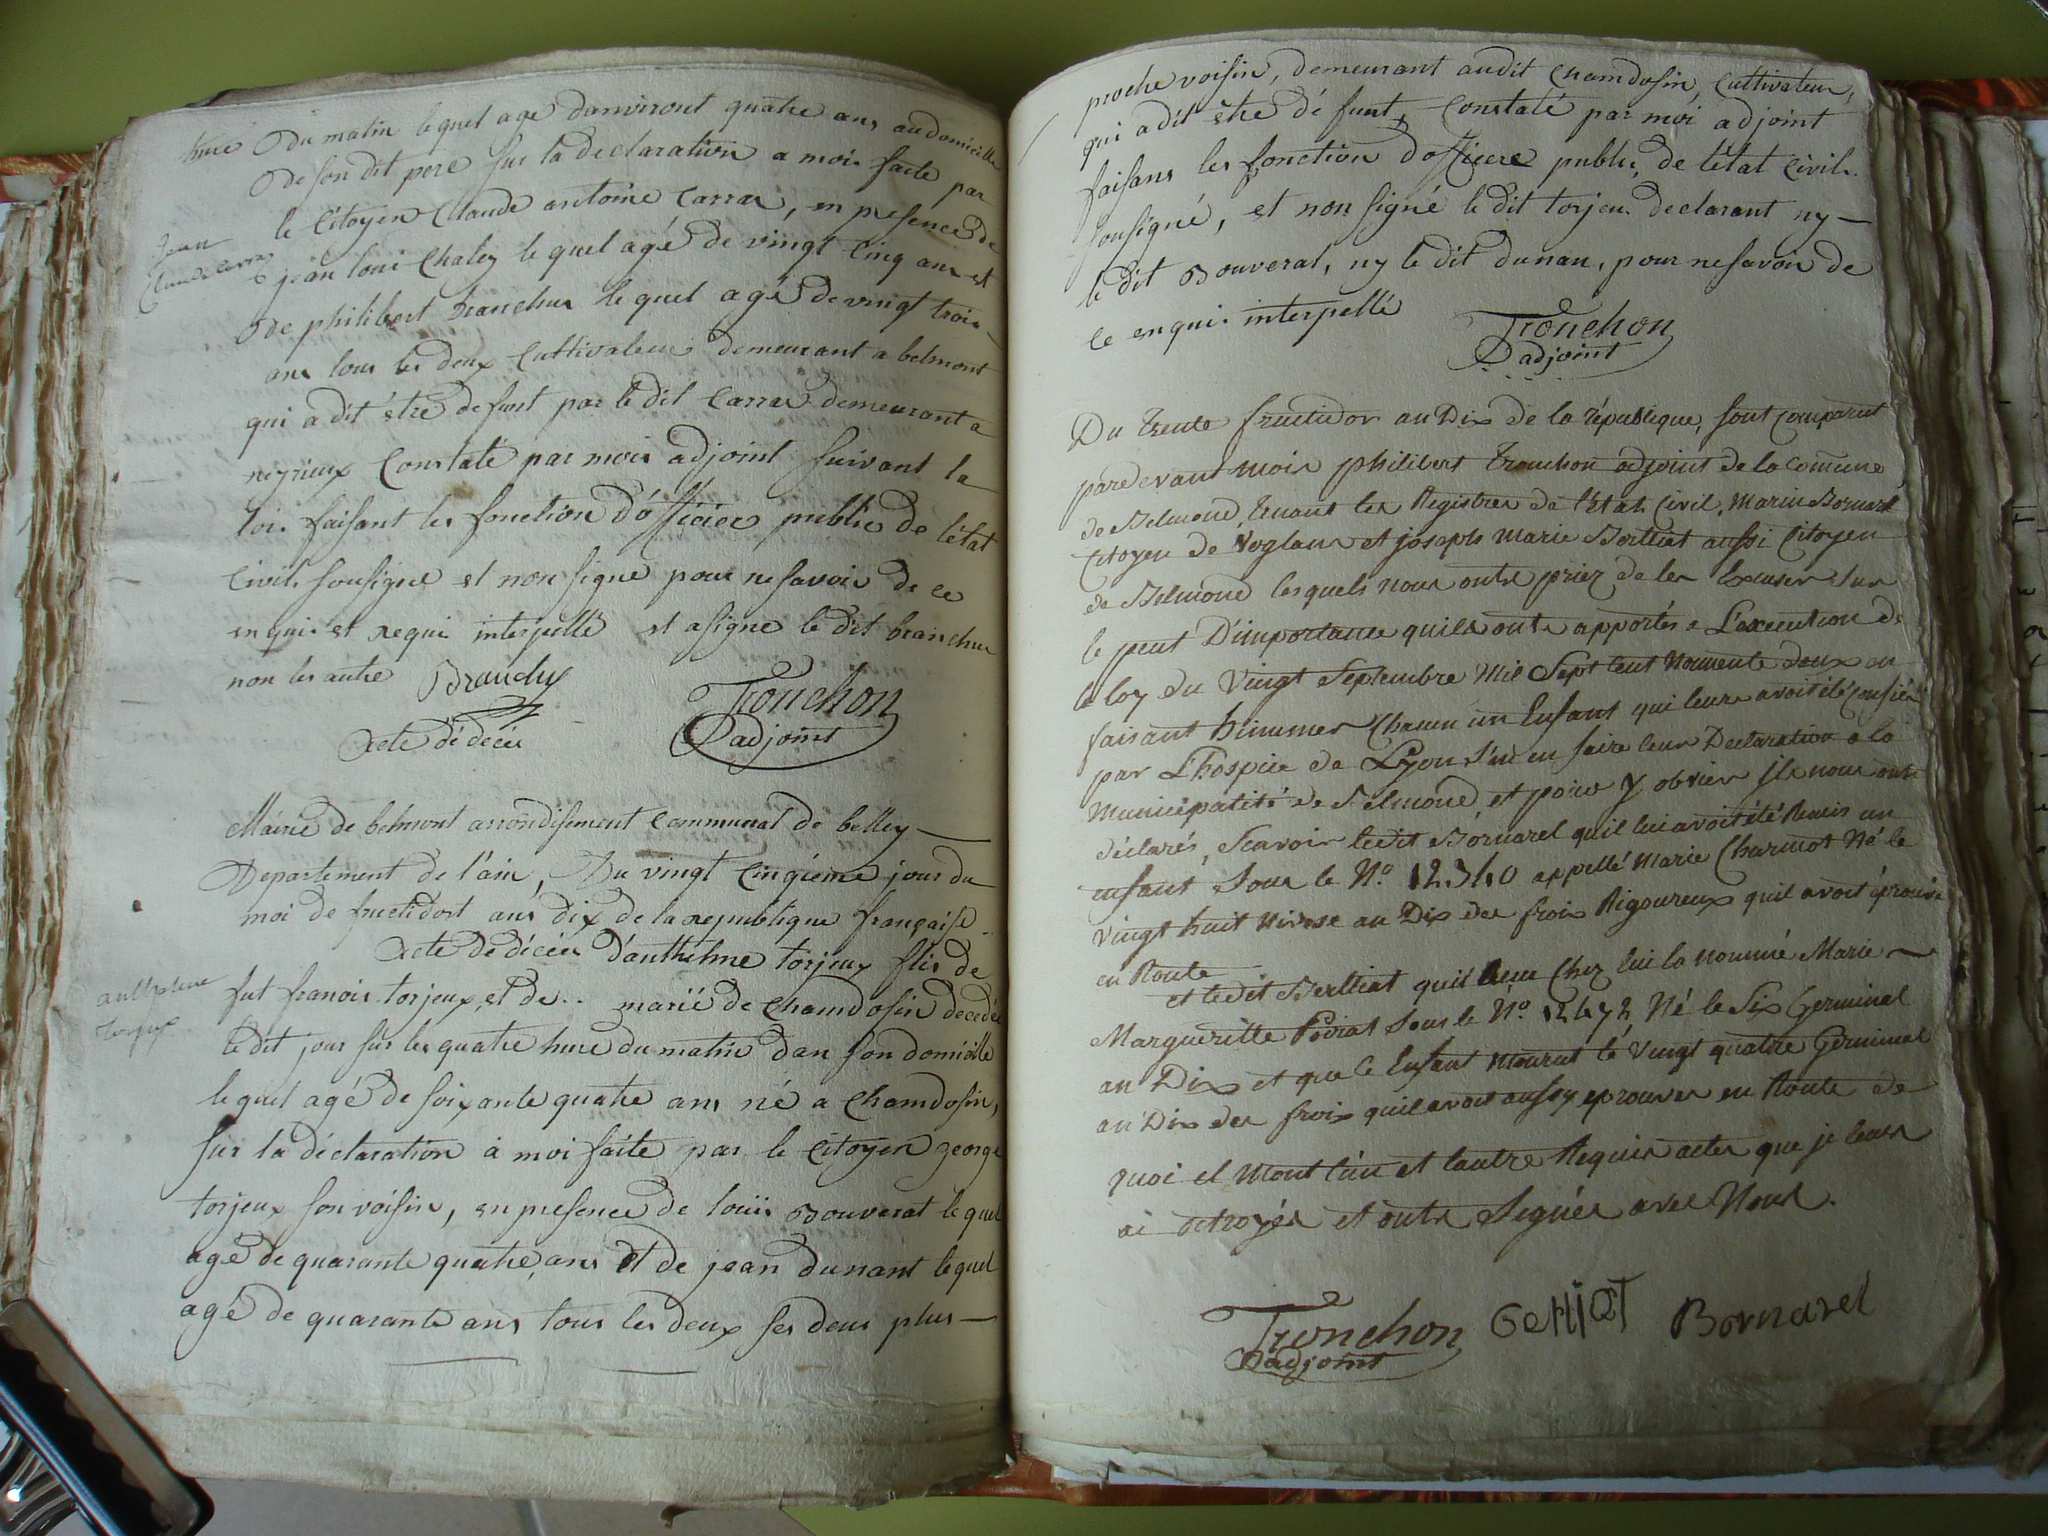 hure du matin lequel age danviront quatre ans au domicille
de son dit pere sur la declaration a moi faite par
le citoyen Claude antoine Carrar, en presence de
Jean
Claude
jean loui Chaley lequel agé de vingt cinq ans et
de philibert branchu lequel agé de vingt trois
ans tous les deux Cultivateur demeurant a belmont
qui a dit être defunt par le dit Carrar demeurant a
neyrieux Constaté par mois adjoint suivant la
loi faisant les fonction d'officiee public de l'état
Civil sousigne et non signe pour ne savoir de ce
enqui et requi interpellé et a signe le dit branchu
non les autre Branchu
Tronchon
adjoint
acte de décès
Mairie de belmont arrondisement Communal de belley
Departement de l'ain, Du vingt Cinqieme jour du
moi de fructidort ans dix de la republique française
Acte de décès d'anthelme torjeux fils de
anthelme
torjeux
fut franois torjeux et de .. marié de Chamdosin decedé
le dit jour sur les quatre hure du matin dan son domicille
lequel agé de soixante quatre ans né a Chamdosin,
sur la déclaration à moi faite par le Citoyen george
torjeux son voisin, en presence de louis Bouverat lequel
agé de quarante quatre ans et de jean Dunant lequel
agé de quarante ans tous les deux ses deux plus
proche voisin, demeurant audit Chamdosin, Cultivateur,
qui a dit être défunt, Constaté par moi adjoint
faisans les fonction d'officiee public de l'état Civil
sousigné, et non signé le dit torjeu declarant ny
le dit Bouverat, ny le dit dunan, pour ne savoir de
ce enqui interpellé
Tronchon
adjoint
Du trente fructidor an Dix de la république, sont comparut
pardevant mois philibert tronchon adjoint de la commune
de Belmond, tenant les Registres de l'Etat Civil, Marin Bornarel
Citoyen de Voglan et joseph marie Berlliat aussi Citoyen
de Belmond lesquels nous onts priez de les Excuser sur
le peut D'importance quils onts apportés a L'axecution de
la loy du Vingt Septembre Mil Sept Cent Nonnente deux en
faisant hinumer Chacun un Enfant qui leurs avoit été Confiér
par L'hospice de Lyon sans en faire leur Declaration a la
Municipatité de Belmond et pour y obvier ils nous onts
déclarés, Scavoir ledit Bornarel quil lui avoit été Remis un
enfant sous le No. 12340 appellé Marie Charmot Né le
Vingt huit Nivose an Dix des frois Rigoureux quil avoit éprouvé
en Route
et ledit Berlliat quil Chez lui la nommé Marie
Margueritte sous le No. 12472 Né le Six Germinal
an Dix et que le Enfant mourut le Vingt quatre Germinal
an Dix des frois quil avoit aussy eprouver en Route de
quoi il mont l'un et l'autre Requis actes que je leurs
ai octroyés et onts Signés avec Nous.
Tronchon
adjoint
Bornarel